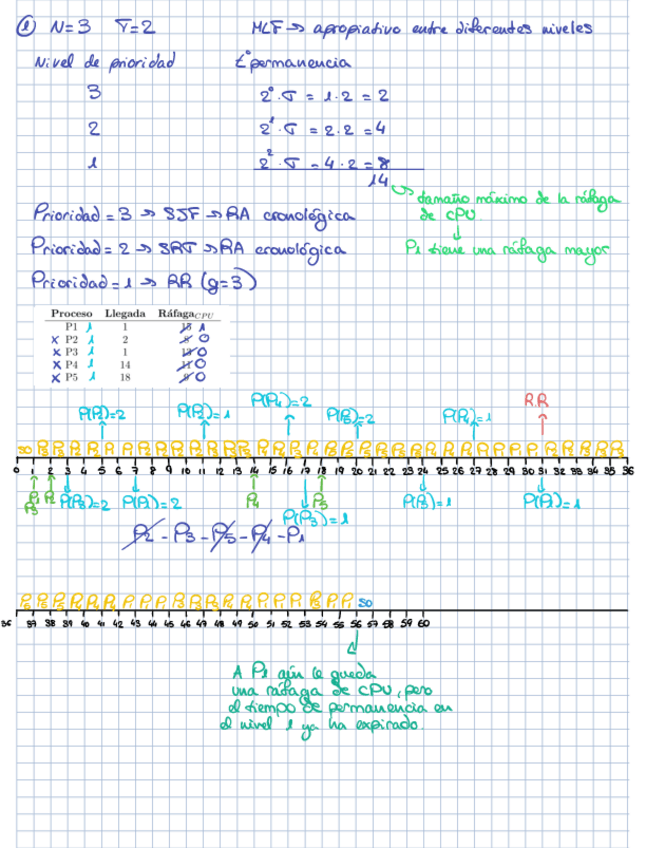 ① N=3 σ=2 MLF → apropiativo entre diferentes niveles
Nivel de prioridad tº permanencia
3 2⁰·σ = 1·2 = 2
2 2¹·σ = 2·2 = 4
1 2²·σ = 4·2 = 8
14
tamaño máximo de la ráfaga
de CPU
P1 tiene una ráfaga mayor
Prioridad = 3 → SJF → RA cronológica
Prioridad = 2 → SRT → RA cronológica
Prioridad = 1 → RR (q=3)
Proceso Llegada Ráfaga CPU
P1 1 1 15 1
x P2 1 2 8 0
x P3 1 1 0
x P4 1 14 11 0
x P5 1 18 9 0
P(P2)=2 P(P2)=1 P(P4)=2 P(P5)=2 P(P4)=1 R.R
0 1 2 3 4 5 6 7 8 9 10 11 12 13 14 15 16 17 18 19 20 21 22 23 24 25 26 27 28 29 30 31 32 33 34 35 36
P1 P2 P(P3)=2 P(P1)=2 P4 P5 P(P5)=1 P(P1)=1
P3 P(P3)=1
P2 - P3 - P5 - P4 - P1
SO
36 37 38 39 40 41 42 43 44 45 46 47 48 49 50 51 52 53 54 55 56 57 58 59 60
A P1 aún le queda
una ráfaga de CPU, pero
el tiempo de permanencia en
el nivel 1 ya ha expirado.